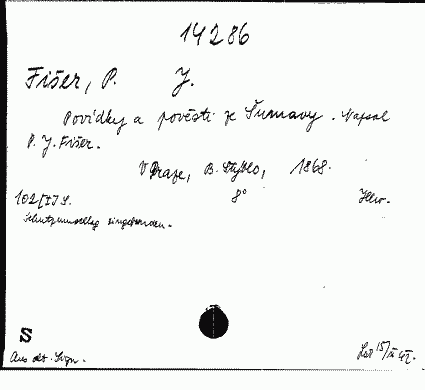 14286
Fišer, P. J.
Povídky a pověsti ze Šumavy. Napsal
P. J. Fišer.
V Praze, B. Stýblo, 1868.
102[II] S. 8° Illw.
Schutzumschlag eingebunden.
S
Aus det. Sign.